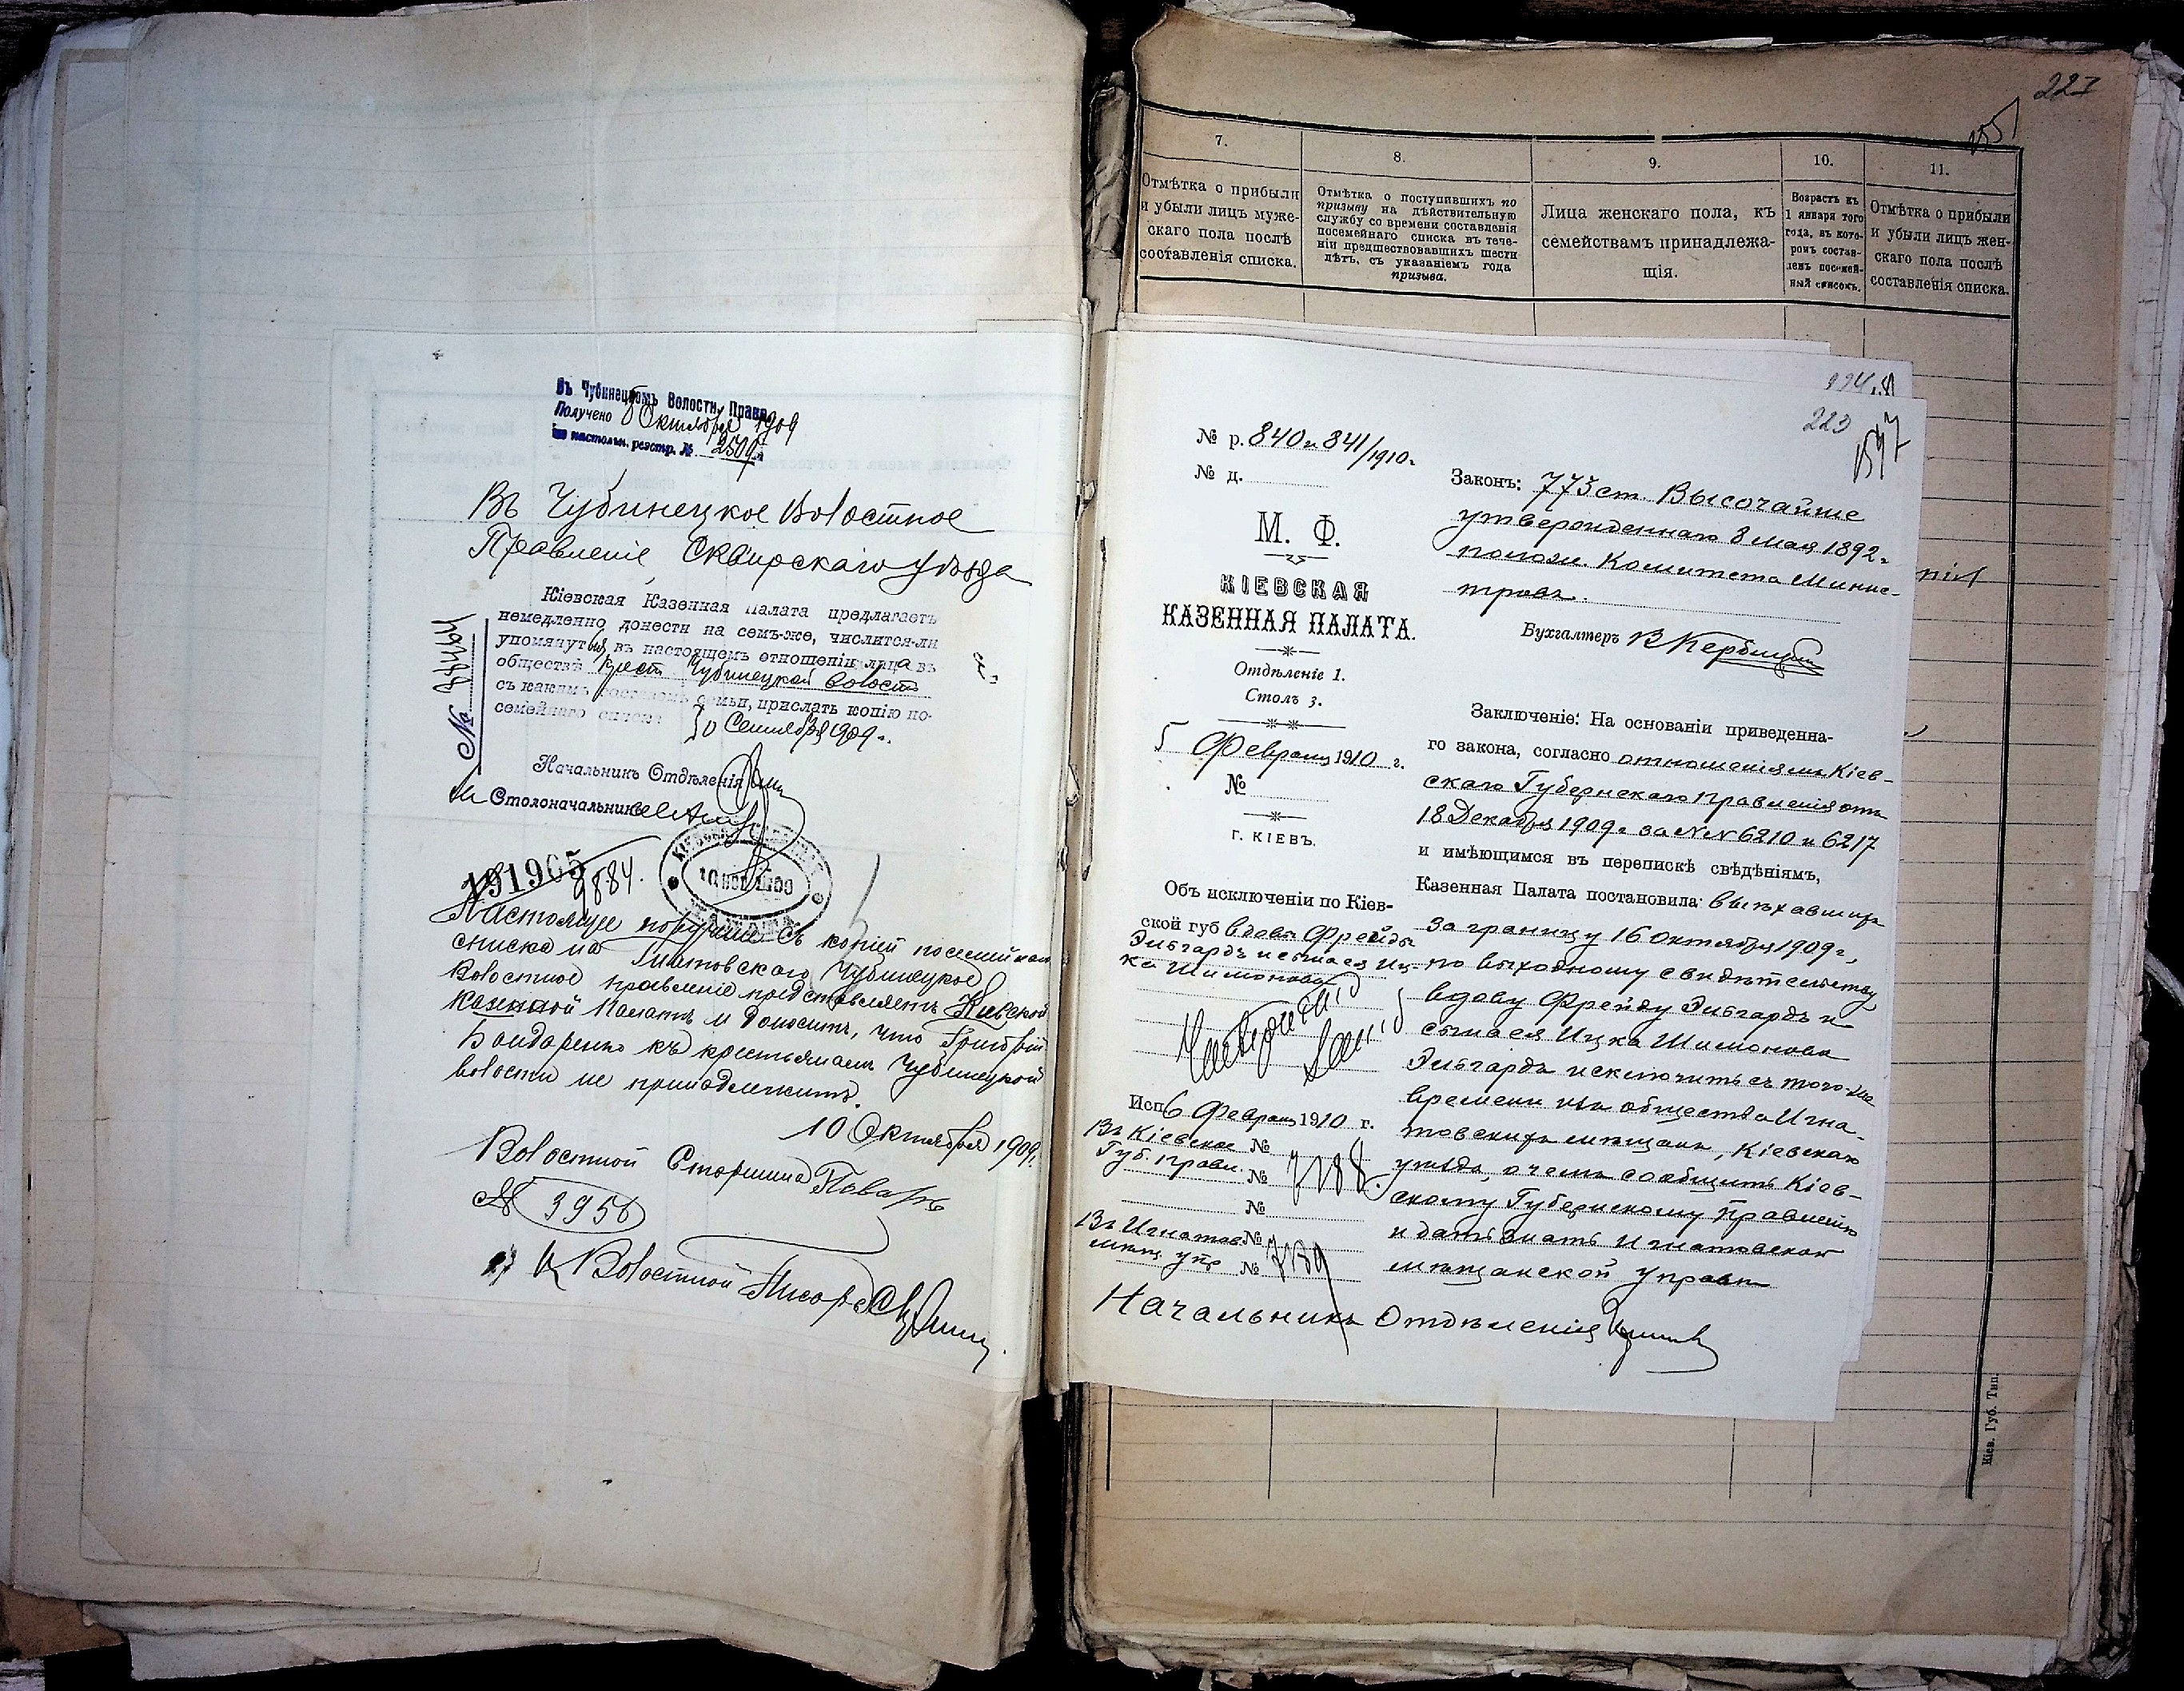 Въ Чубинецкомъ Волостн. Правл.
Получено 8 Октября 1909
по настольн. реестр. № 2509
Въ Чубинецкое Волостное
Правленіе Сквирскаго уѣзда
Кіевская Казенная Палата предлагаетъ
немедленно донести на семъ-же, числится-ли
упомянутыя въ настоящемъ отношеніи лица въ
обществѣ крест Чубинецкой волости
съ какимъ составомъ семьи, прислать копію по-
семейнаго списка
30 Сентября 1909 г.
№
Начальникъ Отдѣленія
Столоначальникъ
191905
9584.
Настоящее съ копіей посемейнаго
списка
Волостное правленіе представляетъ Кіевской
казенной Палатѣ и доноситъ, что Григорій
Бондаренко къ крестьянамъ Чубинецкой
волости не принадлежитъ.
10 Октября 1909 г.
Волостной Старшина
№ 3956
Волостной Писарь
227
7.
Отмѣтка о прибыли
и убыли лицъ муже-
скаго пола послѣ
составленія списка.
8.
Отмѣтка о поступившихъ по
призыву на дѣйствительную
службу со времени составленія
посемейнаго списка въ тече-
ніи предшествовавшихъ шести
лѣтъ, съ указаніемъ года
призыва.
9.
Лица женскаго пола, къ
семействамъ принадлежа-
щія.
10.
Возрастъ къ
1 января того
года, въ кото-
ромъ состав-
ленъ посемей-
ный списокъ.
11.
Отмѣтка о прибыли
и убыли лицъ жен-
скаго пола послѣ
составленія списка.
223
№ р. 840 и 841/1910 г.
№ д.
М. Ф.
КІЕВСКАЯ
КАЗЕННАЯ ПАЛАТА.
Отдѣленіе 1.
Столъ 3.
5 Февраля 1910 г.
№
Г. КІЕВЪ.
Объ исключеніи по Кіев-
ской губ вдовы Фрейды
Эльгардъ и сына ея Иц-
ка Шимонова
Исп 6 Февраля 1910 г.
Въ Кіевское №
Губ. правл. № 7188.
№
Въ Игнатов. №
мѣщ. упр №
Законъ: 773 ст. Высочайше
утвержденнаго 8 мая 1892 г.
полож. Комитета Минис-
тровъ.
Бухгалтеръ
Заключеніе: На основаніи приведенна-
го закона, согласно отношеніямъ Кіев-
скаго Губернскаго Правленія отъ
18 Декабря 1909 г. за №№ 6210 и 6217
и имѣющимся въ перепискѣ свѣдѣніямъ,
Казенная Палата постановила: выѣхавшихъ
за границу 16 октября 1909 г.,
по выходному свидѣтельству
вдову Фрейду Эльгардъ и
сына ея Ицка Шимонова
Эльгардъ исключить съ того-же
времени изъ общества Игна-
товскихъ мѣщанъ, Кіевскаго
уѣзда, о чемъ сообщить Кіев-
скому Губернскому Правленію
и дать знать Игнатовской
мѣщанской управѣ
Начальникъ Отдѣленія
Кіев. Губ. Тип.